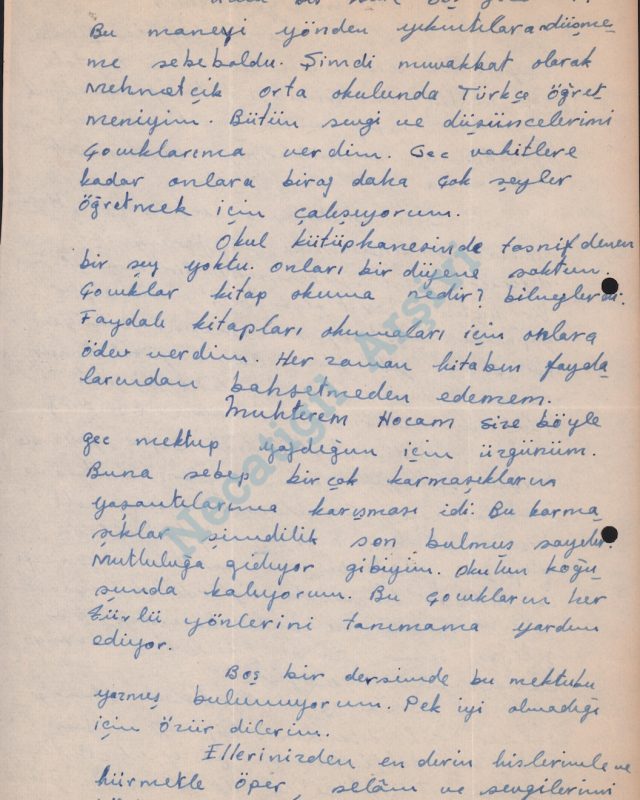 Bu manevi yönden yıkıntılara düşme-
me sebeboldu. Şimdi muvakkat olarak
Mehmetçik orta okulunda Türkçe öğret-
meniyim. Bütün sevgi ve düşüncelerimi
Çocuklarıma verdim. Geç vakitlere
kadar onlara biraz daha çok şeyler
öğretmek için çalışıyorum.
Okul kütüphanesinde tasnif denen
bir şey yoktu. Onları bir düzene soktum.
Çocuklar kitap okuma nedir? bilmezlerdi.
Faydalı kitapları okumaları için onlara
ödev verdim. Her zaman kitabın fayda-
larından bahsetmeden edemem.
Muhterem Hocam size böyle
geç mektup yazdığım için üzgünüm.
Buna sebep birçok karmaşıkların
yaşantılarıma karışması idi. Bu karma-
şıklar şimdilik son bulmuş sayılır.
Mutluluğa gidiyor gibiyim. Okulun koğu-
şunda kalıyorum. Bu çocukların her
türlü yönlerini tanımama yardım
ediyor.
Boş bir dersimde bu mektubu
yazmış bulunuyorum. Pek iyi olmadığı
için özür dilerim.
Ellerinizden en derin hislerimle ve
hürmetle öper, selâm ve sevgilerimi
Necatigil Arşivi